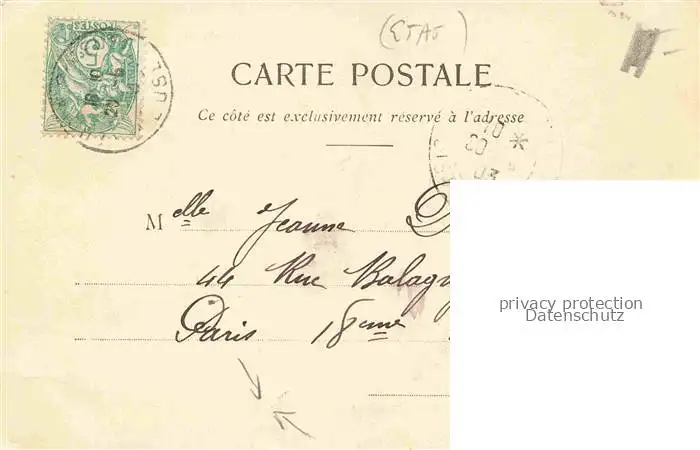 (ETAT)
CARTE POSTALE
Ce côté est exclusivement réservé à l'adresse
Melle Jeanne
44 Rue Balagny
Paris 18eme
privacy protection
Datenschutz